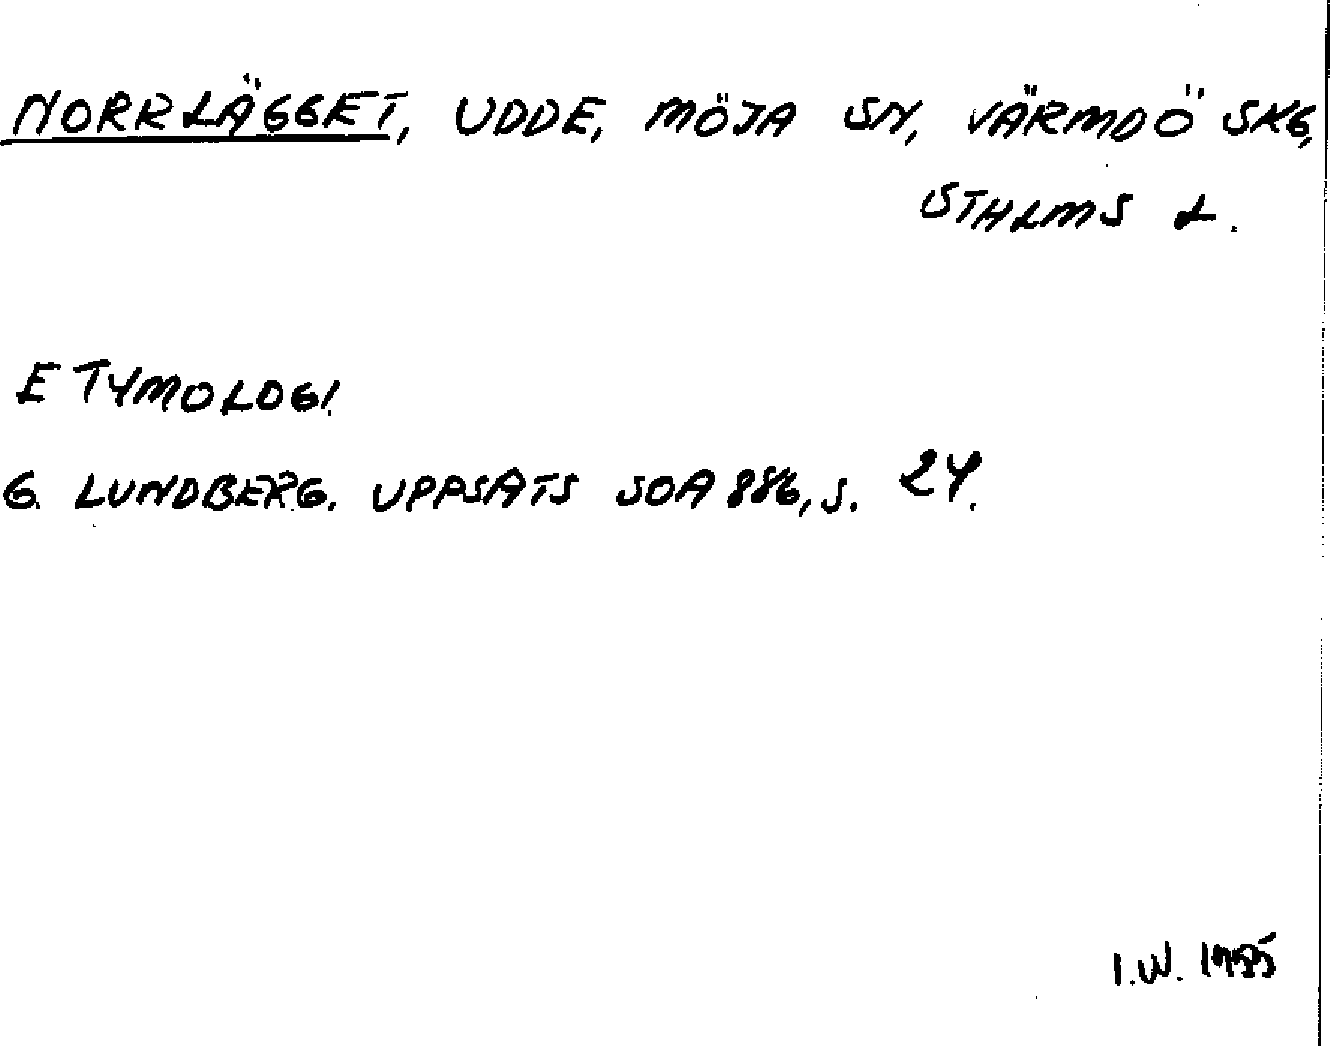 NORRLÄGGET, UDDE, MÖJA SN, VÄRMDÖ SKG,
STHLMS L.
ETYMOLOGI
G. LUNDBERG. UPPSATS SOA 886, S. 24.
I.W.